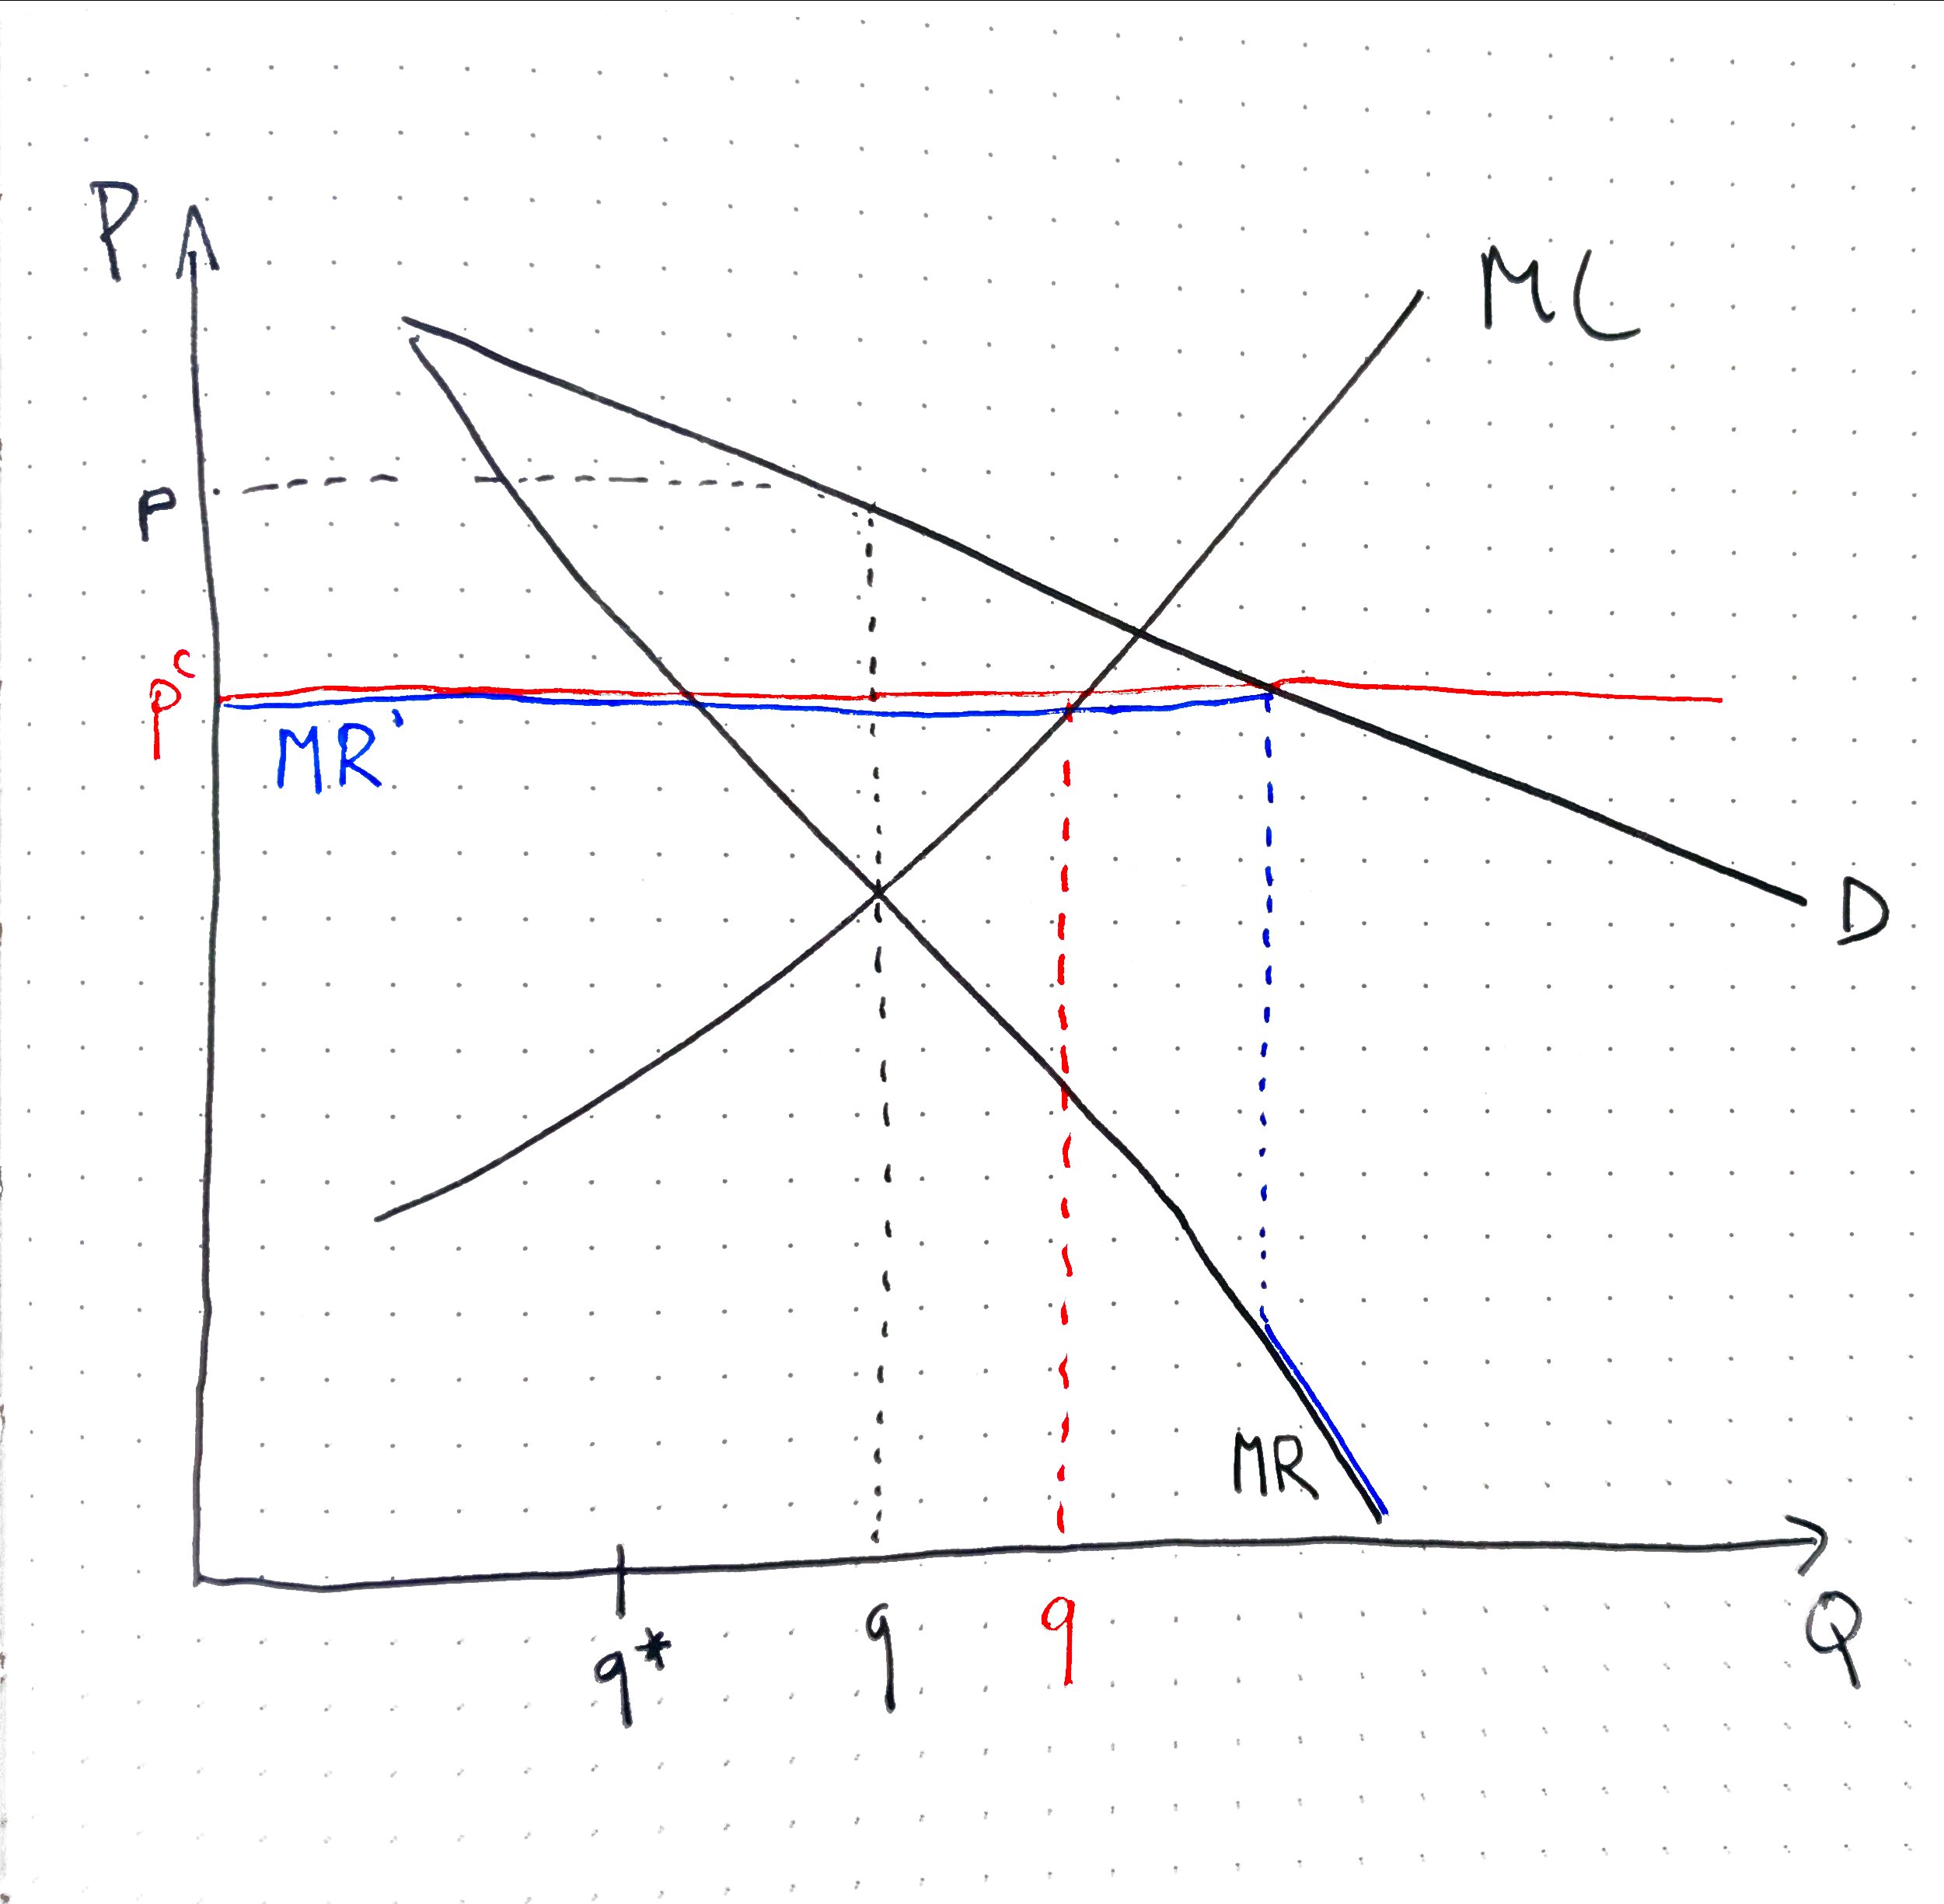 P
MC
P
pᶜ
MR'
D
MR
q*
q
q
Q